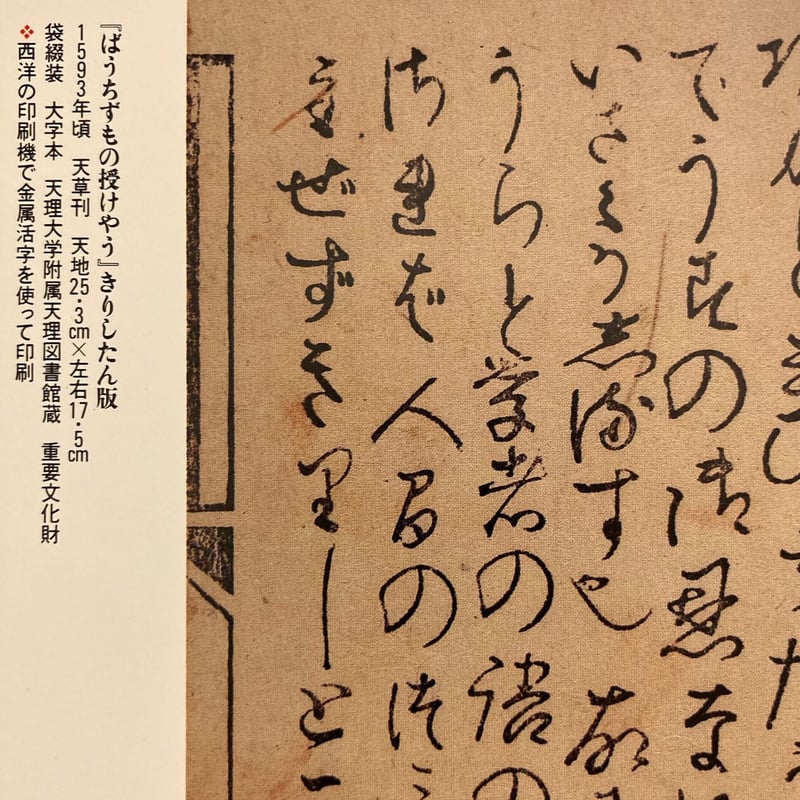 でうすの御恩
いさゝか志るす也
うらと学者の語の
れば人間の
ぜずきりしと
『ばうちずもの授けやう』きりしたん版
1593年頃　天草刊　天地25・3cm×左右17・5cm
袋綴装　大字本　天理大学附属天理図書館蔵　重要文化財
❖西洋の印刷機で金属活字を使って印刷